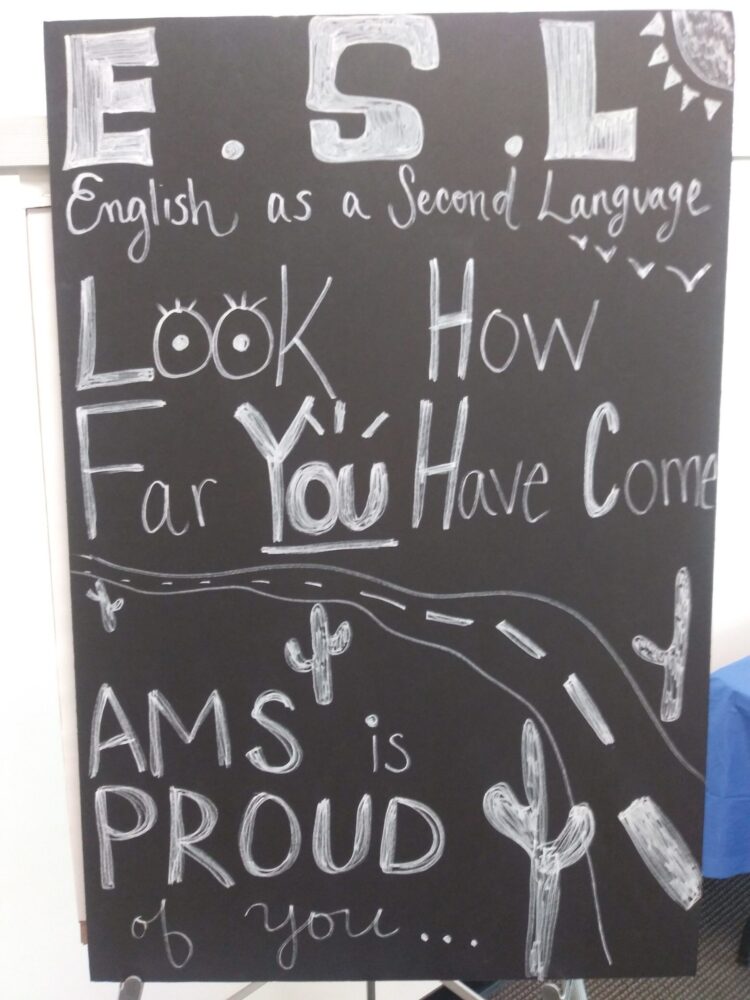 E.S.L
English as a Second Language
Look How
Far You Have Come
AMS is
PROUD
of you...